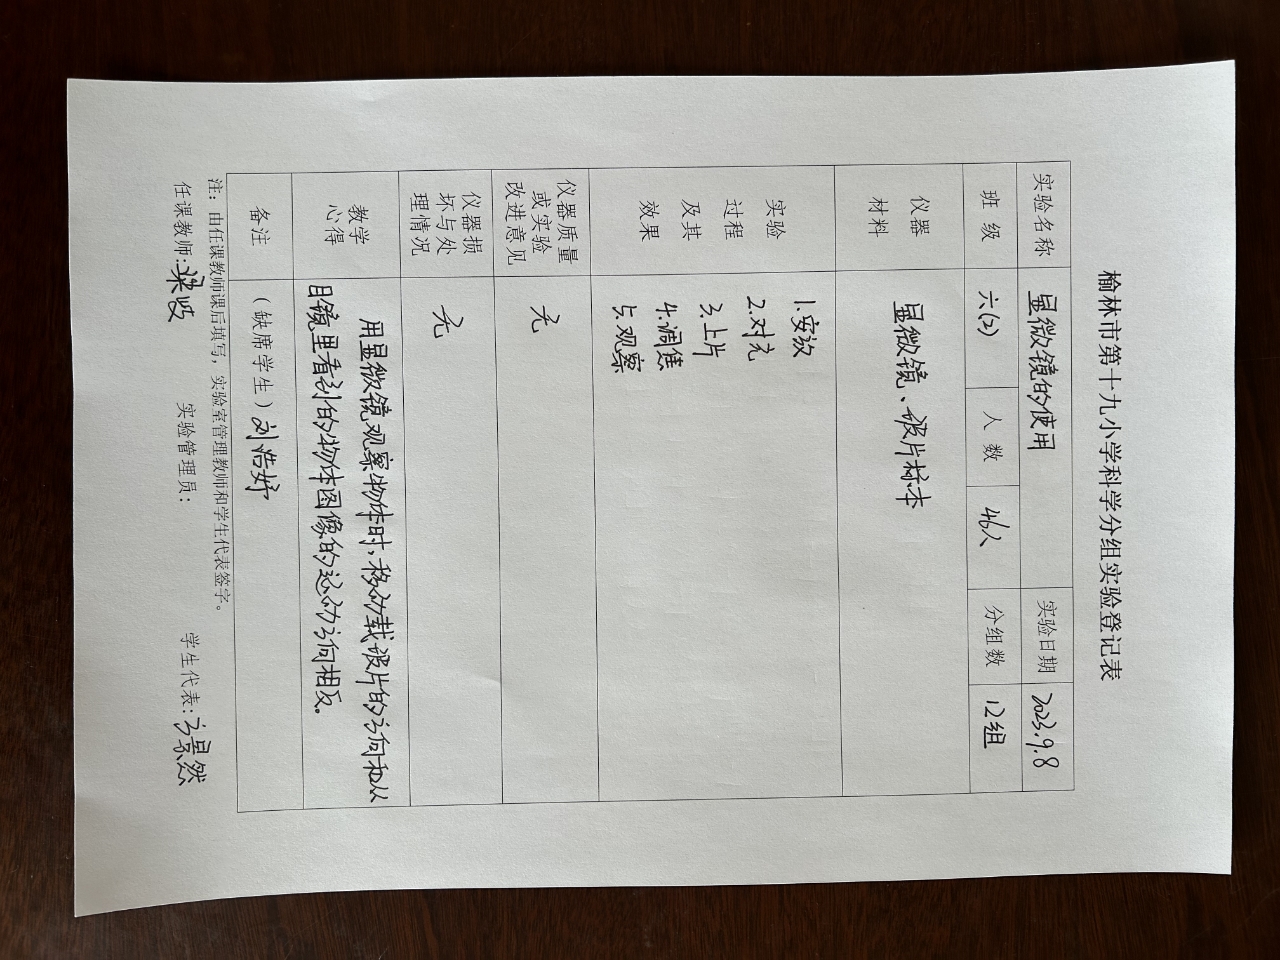 榆林市第十九小学科学分组实验登记表
实验名称 显微镜的使用 实验日期 2023.9.8
班级 六(2) 人数 46人 分组数 12组
仪器材料 显微镜、玻片标本
实验过程及其效果
1.安放
2.对光
3.上片
4.调焦
5.观察
仪器质量或实验改进意见 无
仪器损坏与处理情况 无
教学心得
用显微镜观察物体时,移动载玻片的方向和从
目镜里看到的物体图像的运动方向相反。
备注 (缺席学生)刘浩婷
注:由任课教师课后填写,实验室管理教师和学生代表签字。
任课教师:梁 实验管理员: 学生代表:景然